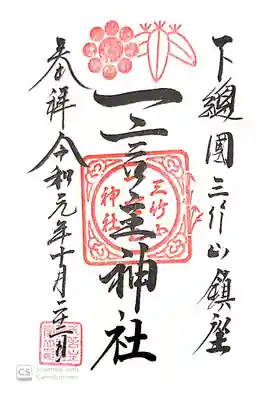 下總國三竹山鎮座
一言主神社
三竹
神社
奉拝 令和元年十月二十二日
CS Scanned with
CamScanner